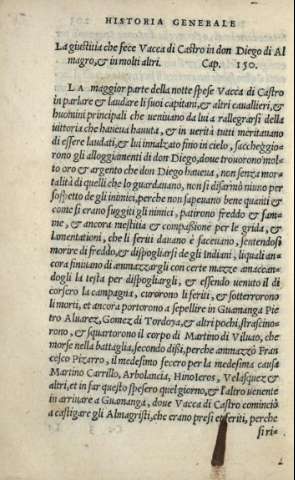 HISTORIA GENERALE
La giustitia che fece Vacca di Castro in don Diego di Al
magro, & in molti altri. Cap. 150.
LA maggior parte della notte spese Vacca di Castro
in parlare & laudare li suoi capitani, & altri cavallieri, &
huomini principali che ueniuano da lui a rallegrarsi della
uittoria che haueua hauuta, & in uerità tutti meritauano
di essere laudati, & lui innalzato fino in cielo, saccheggio-
rono gli alloggiamenti di don Diego, doue trouorono mol-
to oro & argento che don Diego haueua, non senza mor-
talità di quelli che lo guardauano, non si disarmò niuno per
sospetto de gli inimici, perche non sapeuano bene quanti &
come si erano fuggiti gli nimici, patirono freddo & fa-
me, & ancora mestitia & compassione per le grida, &
lamentationi, che li feriti dauano & faceuano, sentendosi
morire di freddo, & dispogliarsi de gli Indiani, li quali an-
cora finiuano di ammazzargli con certe mazze amaccan-
dogli la testa per dispogliargli, & essendo uenuto il di
corsero la campagna, curorono li feriti, & sotterrorono
li morti, et ancora portorono a sepellire in Guamanga Pie
tro Aluarez, Gomez di Tordoya, & altri pochi, strascino-
rono, & squartorono il corpo di Martino di Viluao, che
morse nella battaglia, secondo dissi, perche ammazzò Fran
cesco Pizarro, il medesimo fecero per la medesima causa
Martino Carrillo, Arbolancia, Hinoieros, Velasquez &
altri, et in far questo spesero quel giorno, & l'altro uenente
in arriuare a Guananga, doue Vacca di Castro cominciò
a castigare gli Almagristi, che erano presi et feriti, perche
si ri-